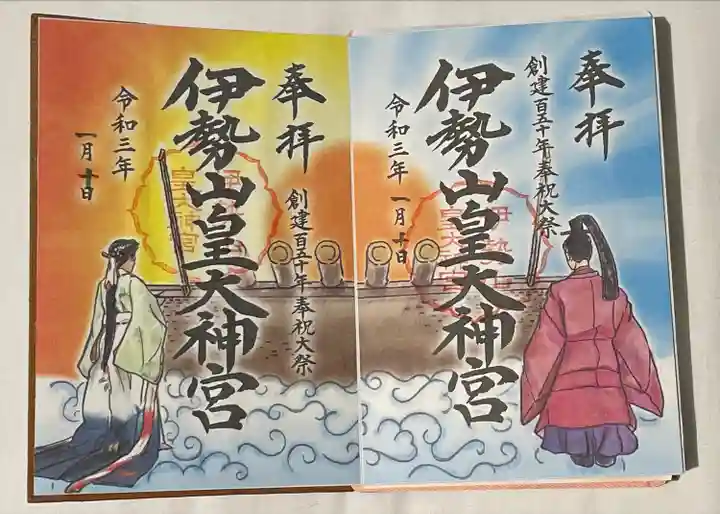 奉拝
創建百五十年奉祝大祭
伊勢山皇大神宮
令和三年 一月十日
奉拝
創建百五十年奉祝大祭
伊勢山皇大神宮
令和三年
一月十日